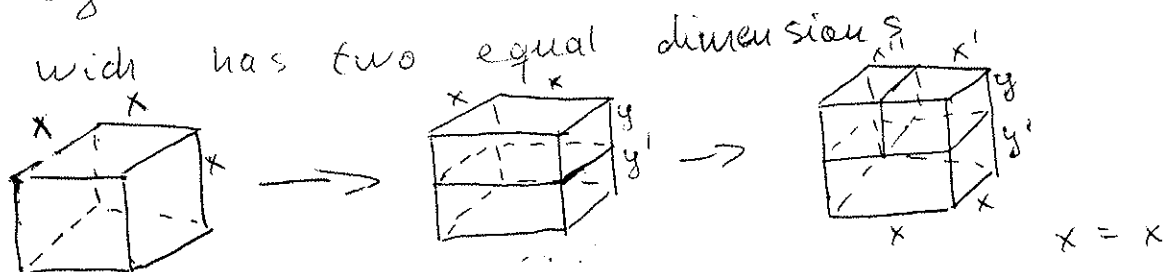 wich has two equal dimensions
x x x
x x y y'
x'' x' y y' x x
x = x